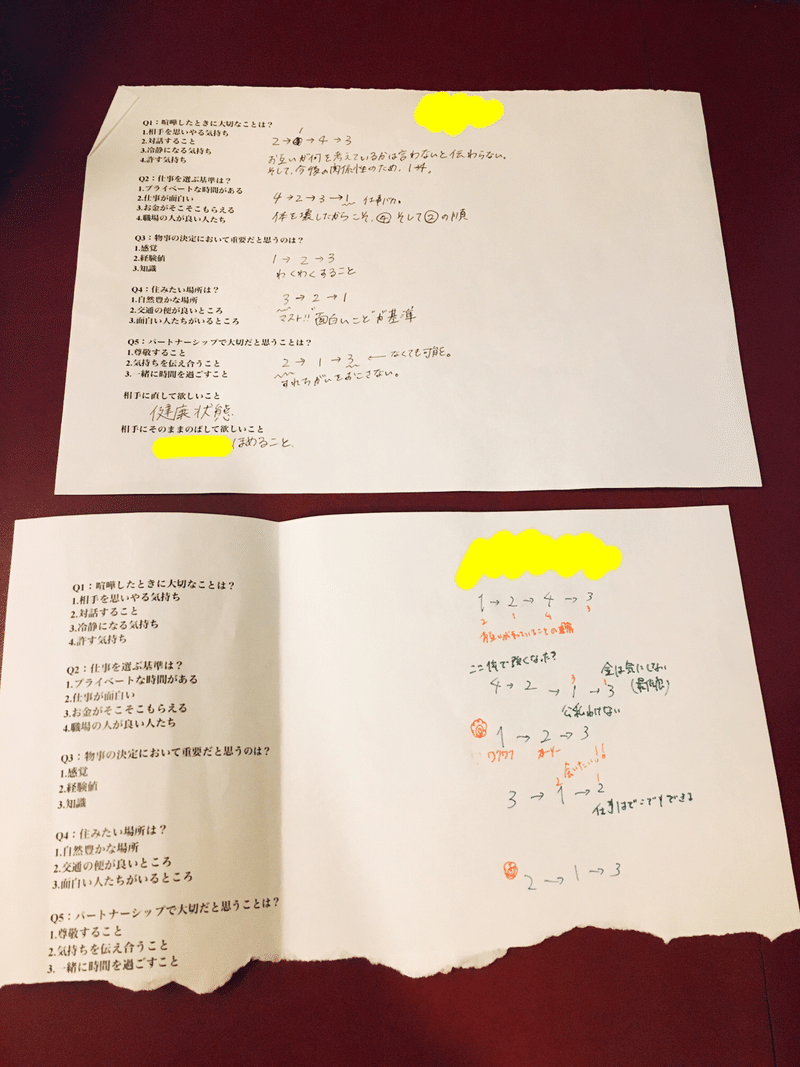 Q1：喧嘩したときに大切なことは？
1.相手を思いやる気持ち
2.対話すること
3.冷静になる気持ち
4.許す気持ち
1
2→→4→3
お互いが何を考えているかは言わないと伝わらない。
そして、今後の関係性のため、1→4。
Q2：仕事を選ぶ基準は？
1.プライベートな時間がある
2.仕事が面白い
3.お金がそこそこもらえる
4.職場の人が良い人たち
4→2→3→1 仕事バカ。
体を壊したからこそ、④そして②の順
Q3：物事の決定において重要だと思うのは？
1.感覚
2.経験値
3.知識
1→2→3
わくわくすること
Q4：住みたい場所は？
1.自然豊かな場所
2.交通の便が良いところ
3.面白い人たちがいるところ
3→2→1
マスト!! "面白いこと"が基準
Q5：パートナーシップで大切だと思うことは？
1.尊敬すること
2.気持ちを伝え合うこと
3.一緒に時間を過ごすこと
2→1→3 ←なくても可能。
すれちがいをおこさない。
相手に直して欲しいこと
健康状態
相手にそのままのばして欲しいこと
ほめること。
Q1：喧嘩したときに大切なことは？
1.相手を思いやる気持ち
2.対話すること
3.冷静になる気持ち
4.許す気持ち
1→2→4→3
2 1 4 3
Q2：仕事を選ぶ基準は？
1.プライベートな時間がある
2.仕事が面白い
3.お金がそこそこもらえる
4.職場の人が良い人たち
ここ後で強くなった?
4→2→1→3
3 1
金は気にしない
(最低限)
公私わけない
Q3：物事の決定において重要だと思うのは？
1.感覚
2.経験値
3.知識
1→2→3
ワクワク
Q4：住みたい場所は？
1.自然豊かな場所
2.交通の便が良いところ
3.面白い人たちがいるところ
会いたい!!
2 1
3→1→2
仕事はどこでもできる
Q5：パートナーシップで大切だと思うことは？
1.尊敬すること
2.気持ちを伝え合うこと
3.一緒に時間を過ごすこと
2→1→3